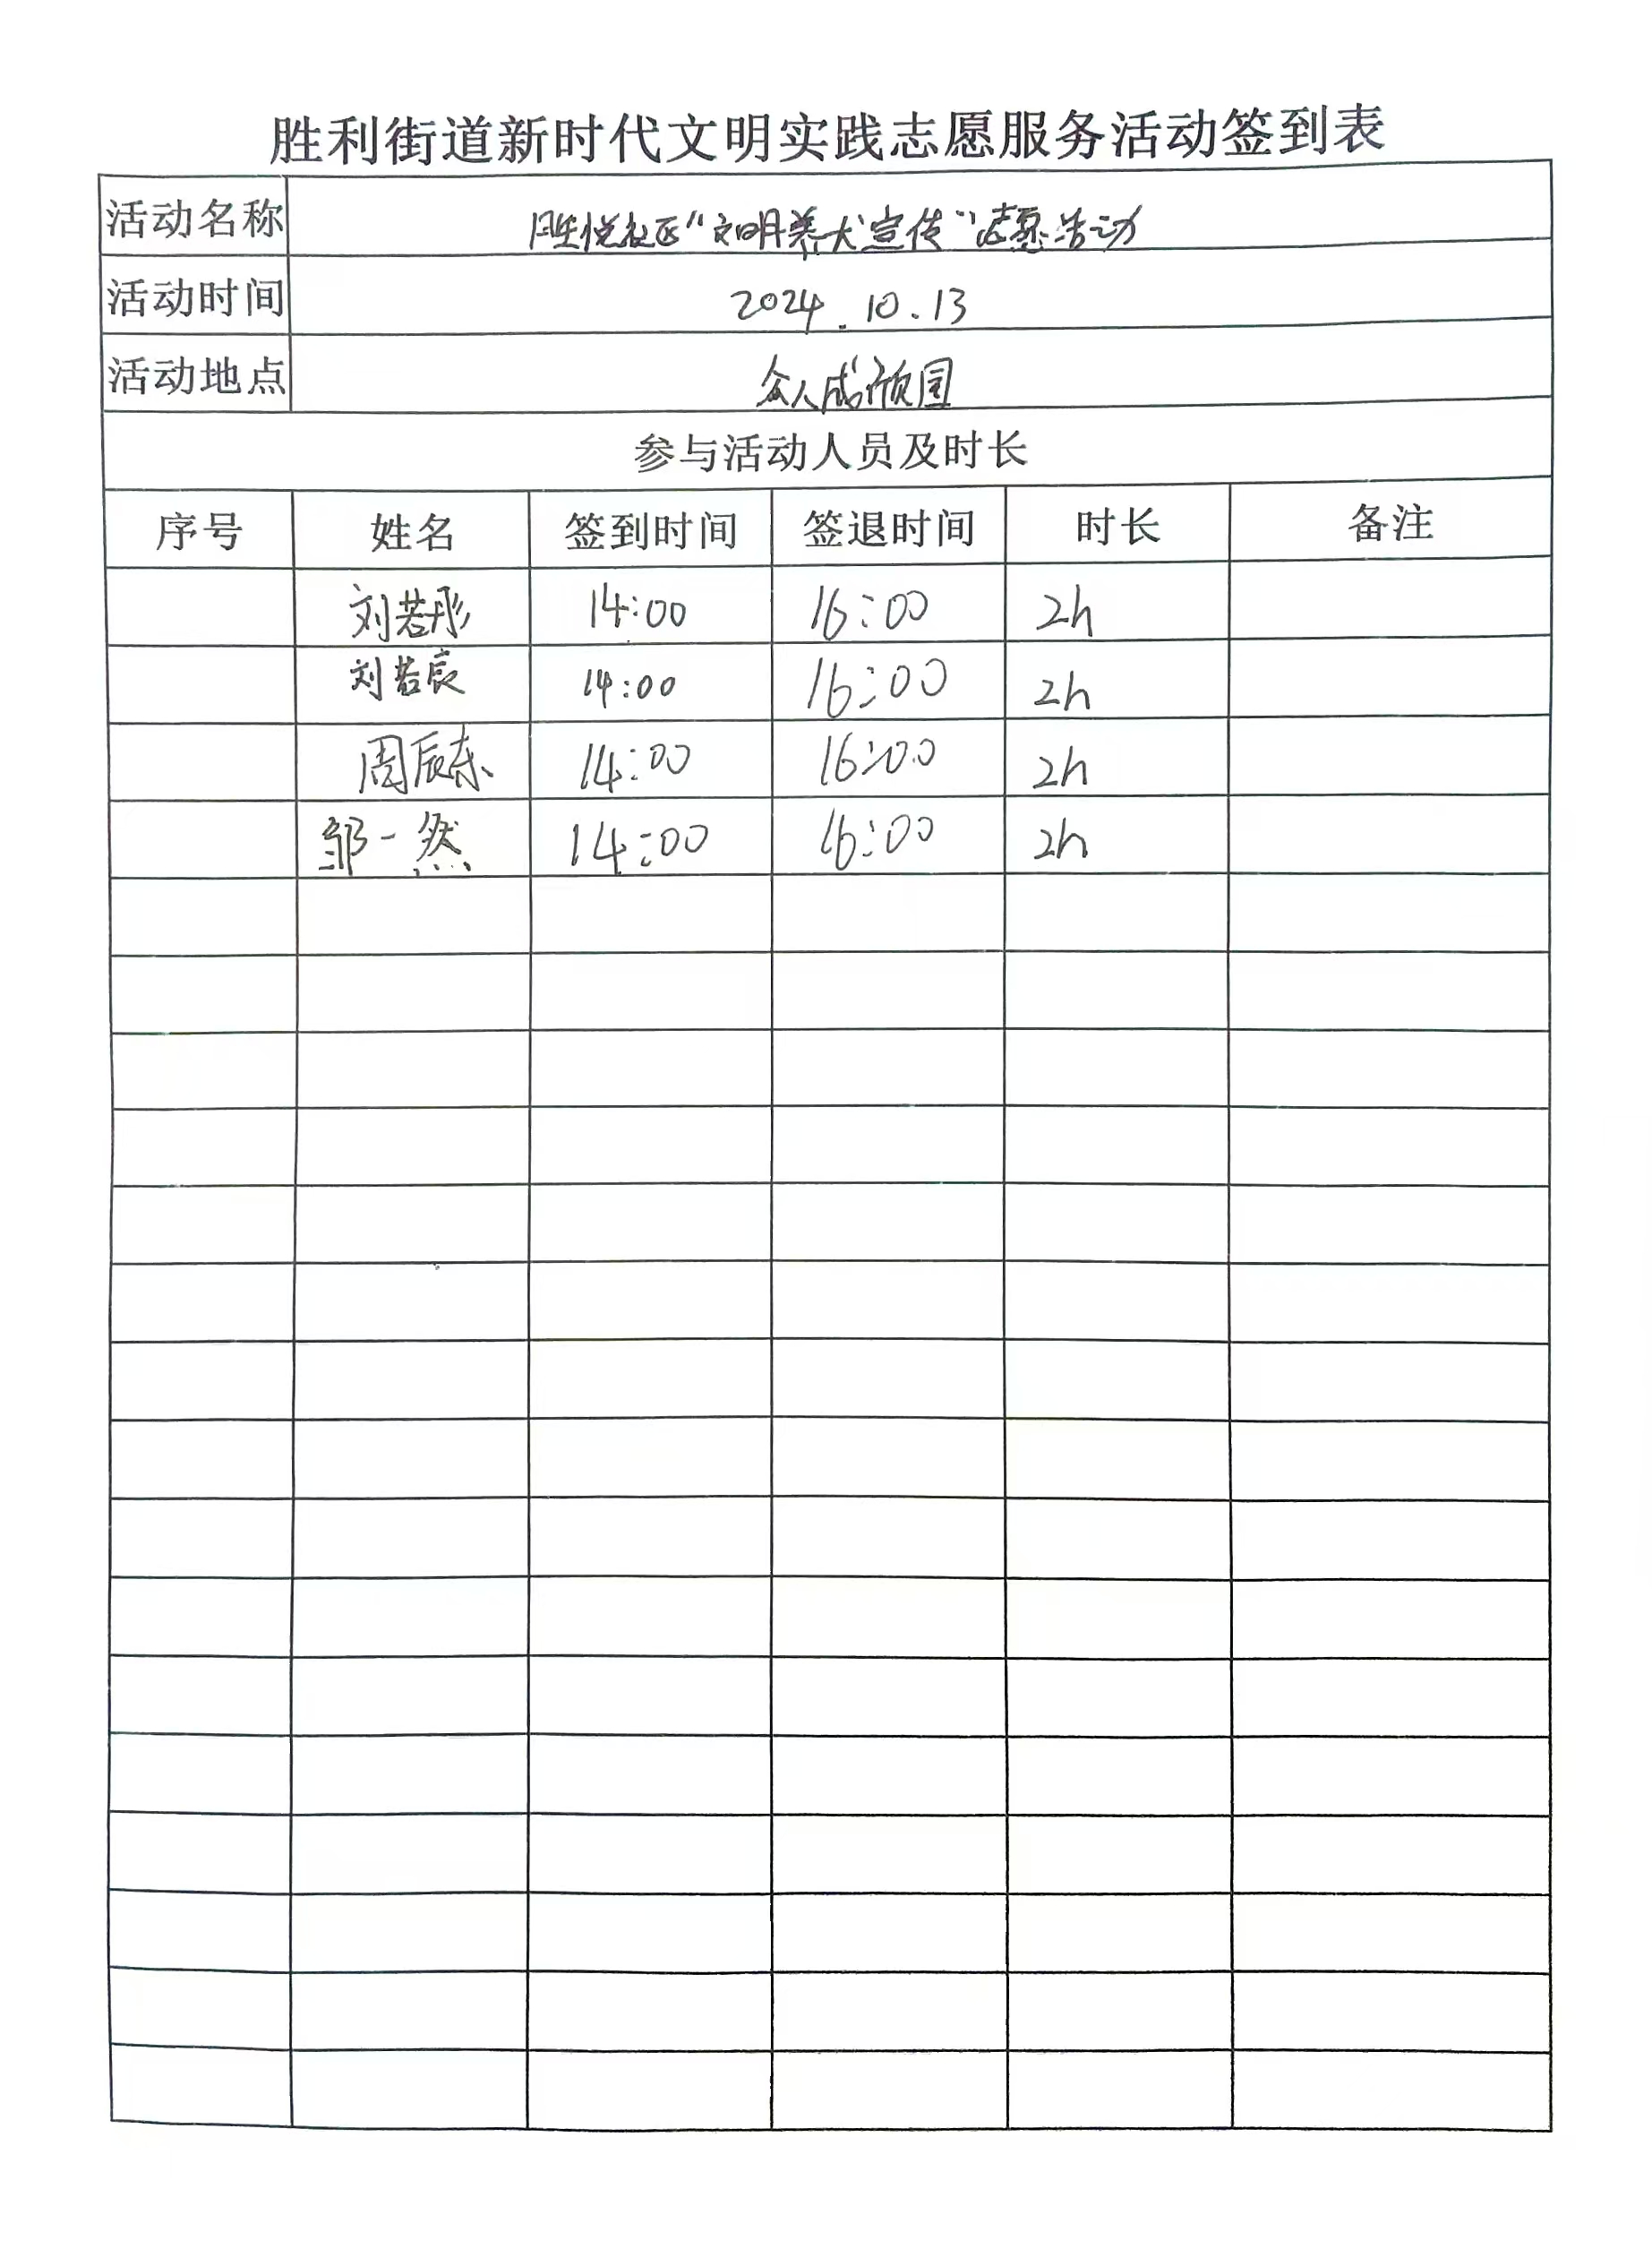 胜利街道新时代文明实践志愿服务活动签到表
活动名称 胜悦社区“文明养犬宣传”志愿活动
活动时间 2024.10.13
活动地点 众人成颀园
参与活动人员及时长
序号 姓名 签到时间 签退时间 时长 备注
刘若彤 14:00 16:00 2h
刘若辰 14:00 16:00 2h
周辰东 14:00 16:00 2h
邹一然 14:00 16:00 2h